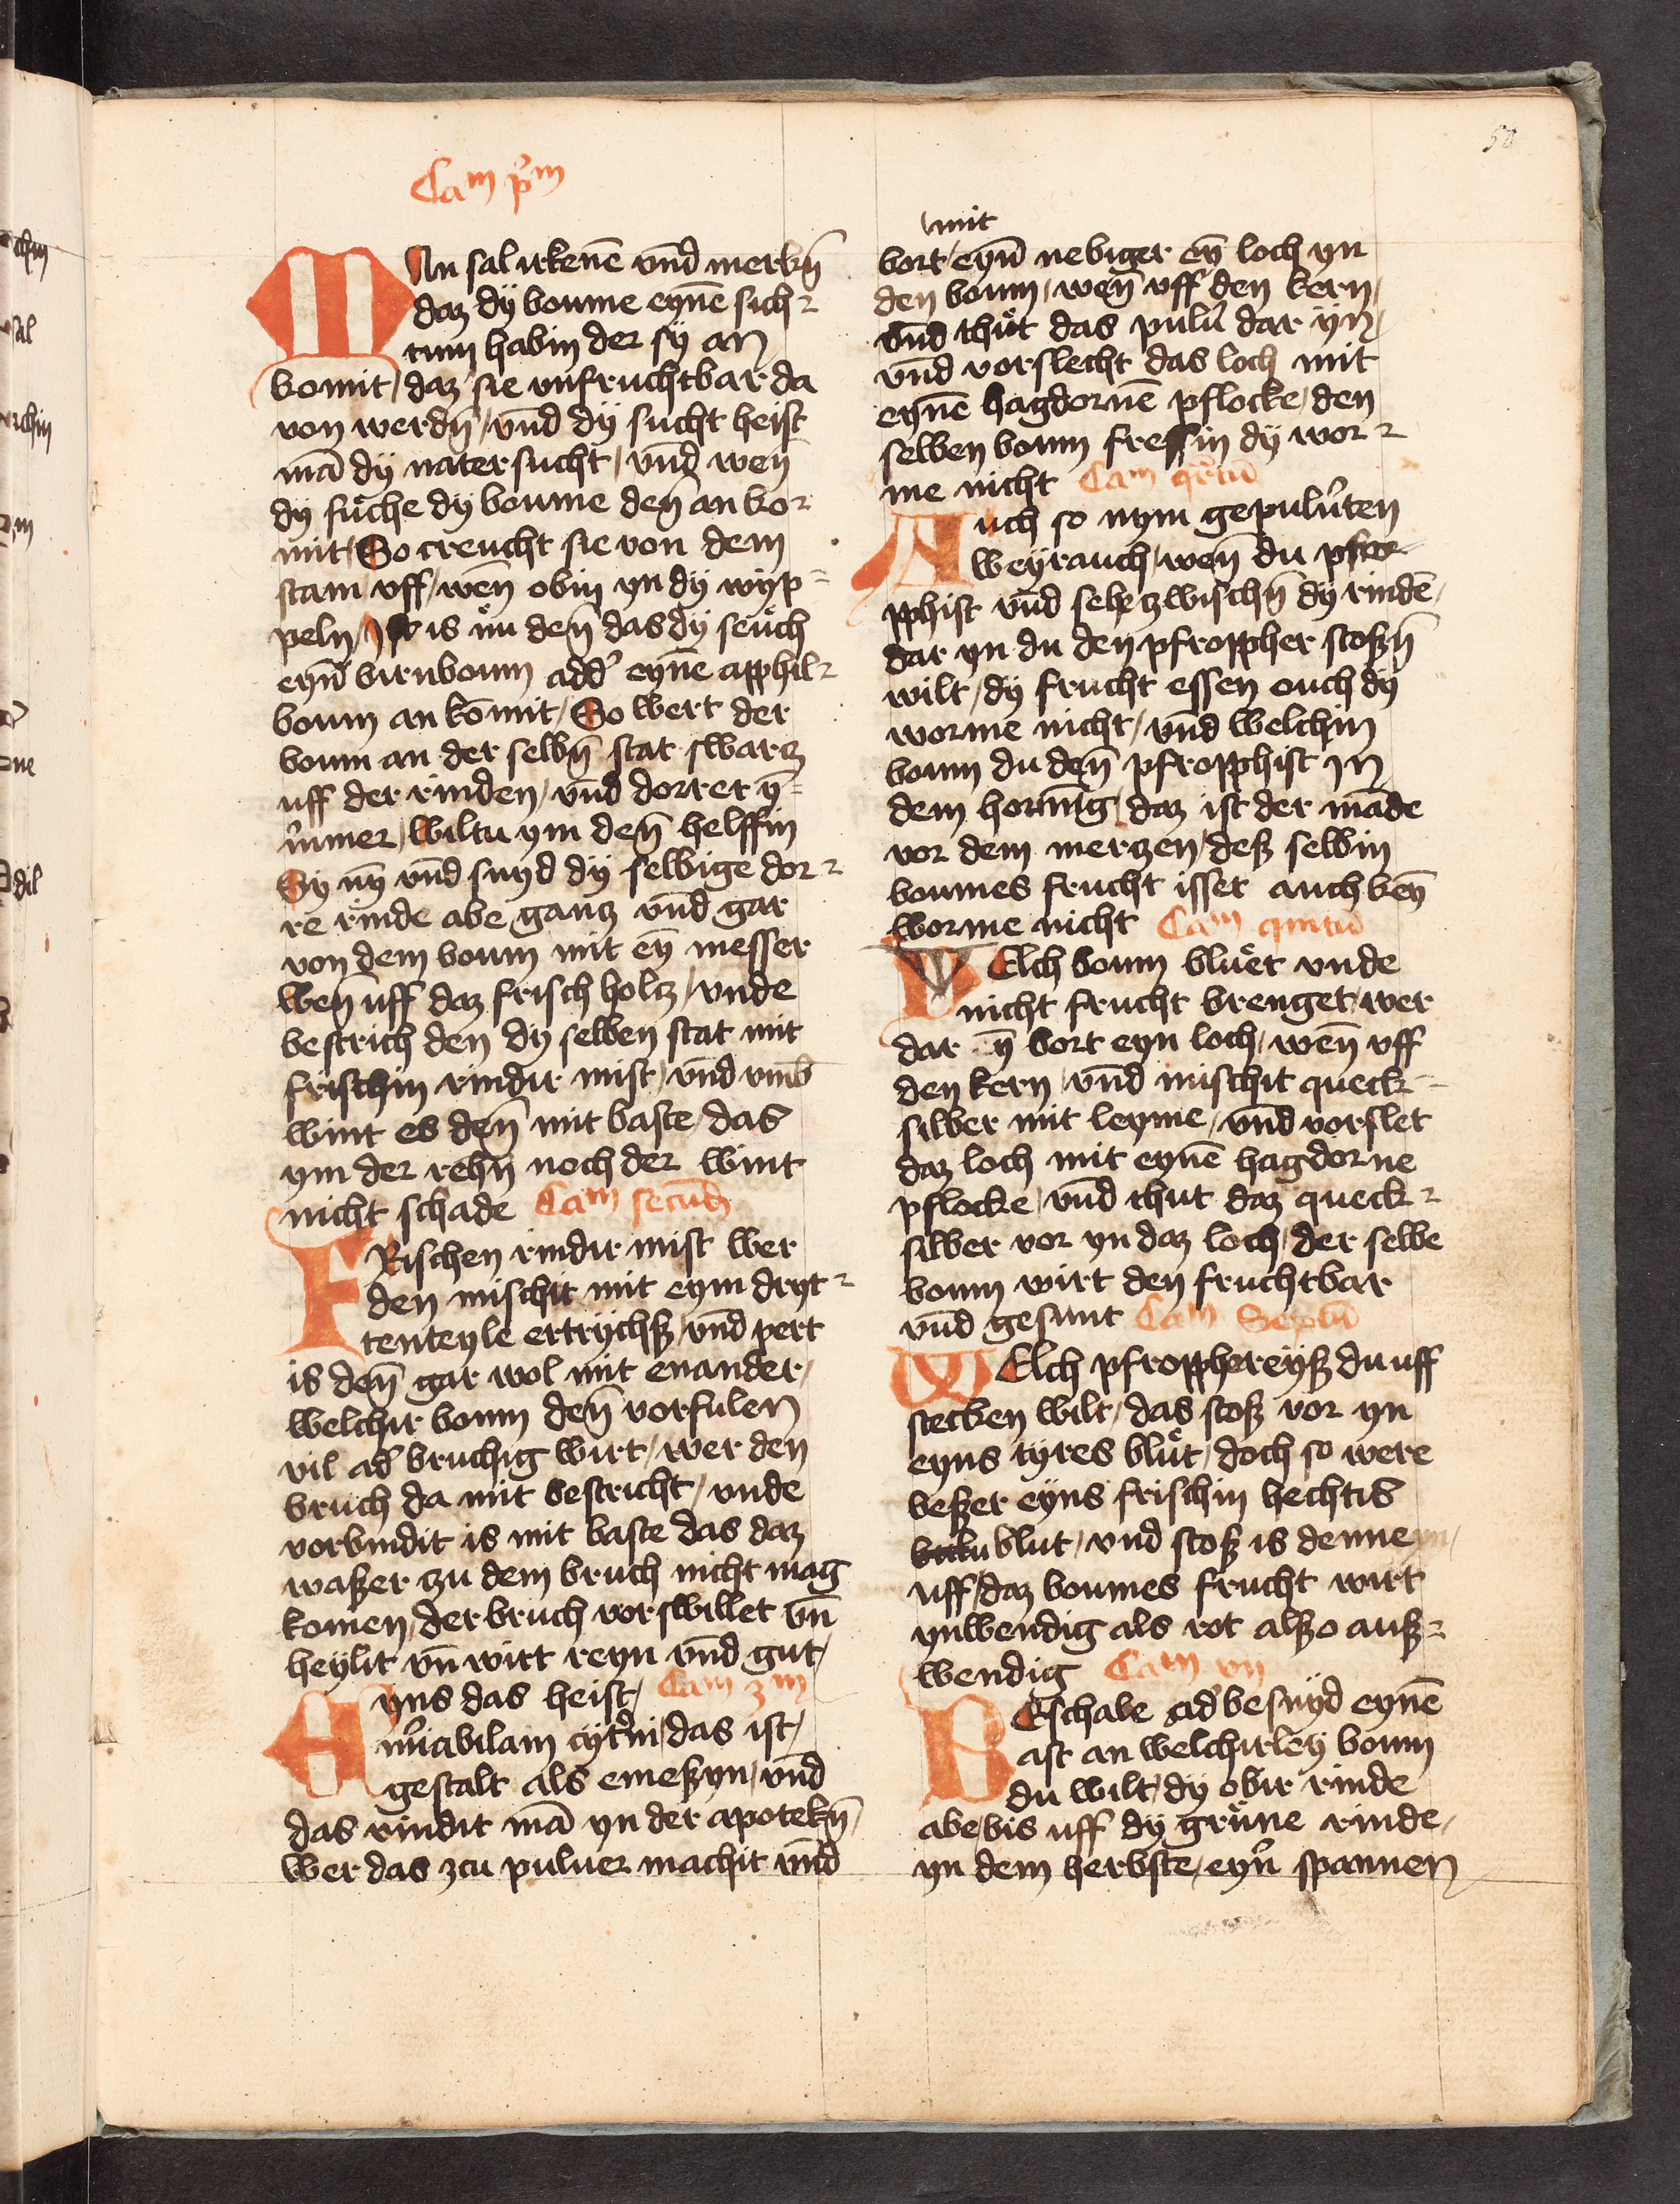 58
Cam pͥm
MAn sal irkenē vnd merkn̄
daz dÿ boume eynē sich⸗
tum habin der sÿ an
komit / daz sie vnfruchtbar da
von werdn̄ / vnd dÿ sucht heist
mā dÿ natersucht / vnd wen̄
dÿ suͤche dÿ boume den̄ an ko⸗
mit / So creucht sie von dem
stam / vff / wen̄ obin yn dÿ wyp⸗
peln / is nu den̄ das dÿ seuͤch
eyn̄ birnboum add' eynē apphil⸗
boum an komit / So wert der
boum an der selbn̄ stat swarcz
uff der rinden / vnd dorret ÿ⸗
mmer / wiltu ym den̄ helffin
Sÿ nÿ vnd snyd dÿ selbige dor⸗
re rinde abe gancz vnd gar
von dem boum mit eÿ messer
wen̄ uff daz frisch holcz / vnde
bestrich den dÿ selben stat mit
frischin rindir mist / vnd vmb
wint es den̄ mit baste / das
ym der rehn̄ noch der wint
nicht schade Cam secūd
FRischen rindir mist wer
den mischit mit eym dryt⸗
tenteyle ertrychß / vnd pert
is den̄ gar wol mit enander /
welchir boum den̄ vorfulen
vil ad' bruchig wirt / wer den
bruch da mit bestricht / vnde
vorbindit is mit baste das daz
waßer zu dem bruch nicht mag
komen / der bruch vorswillet vn̄
heylit vn̄ wirt reyn vnd gut /
yns das heist / Cam 3m
mͥabilam cytͥni / das ist /
gestalt als emeßyn / vnd
das vindit mā yn der apotekn̄ /
wer das zcu puluer machit vnd
mit
bort / eyn̄ nebiger eÿ loch yn
den boum / wen̄ vff den kern /
vnd thuͤt das pulu' dar ÿn /
vnd vorslecht das loch mit
eynē hagdornē pflocke / den
selben boum fressin dÿ wor⸗
me nicht Cam qrtū
Auch so nym gepulu'ten
weÿrauch / wen̄ du pfro
pphist vnd sehe zwischn̄ dÿ rindē /
dar yn du den pfroppher stoßn̄
wilt / dÿ frucht essen ouch dÿ
worme nicht / vnd welchin
boum du den̄ pfropphist Jn
dem hornūg / daz ist der māde
vor dem merczen / deß selbin
boumes frucht isset auch keÿ
worme nicht Cam quītū
WElch boum bluͤet vnde
nicht frucht brenget / wer
dar ÿ bort eyn loch / wen̄ vff
den kern / vnd mischit queck⸗
silber mit leyme / vnd vorslet
daz loch mit eynē hagdorne
pflocke / vnd thut daz queck⸗
silber vor yn daz loch / der selbe
boum wirt den fruchtbar
vnd gesunt Cam Septū
WElch pfropphereyß du uff
stecken wilt / das stoß vor yn
eyns tyres bluͤt / doch so were
beßer eyns frischin hechtis
blut / vnd stoß is denne yn /
uff / daz boumes frucht wirt
ynwendig als rot alßo auß⸗
wendig Cam vij
BEschabe ad' besnyd eynē
ast an welchirleÿ boum
du wilt / dÿ obir rinde
abe / bis uff dÿ gruͤne rinde /
yn dem herbste / eyn' spannen